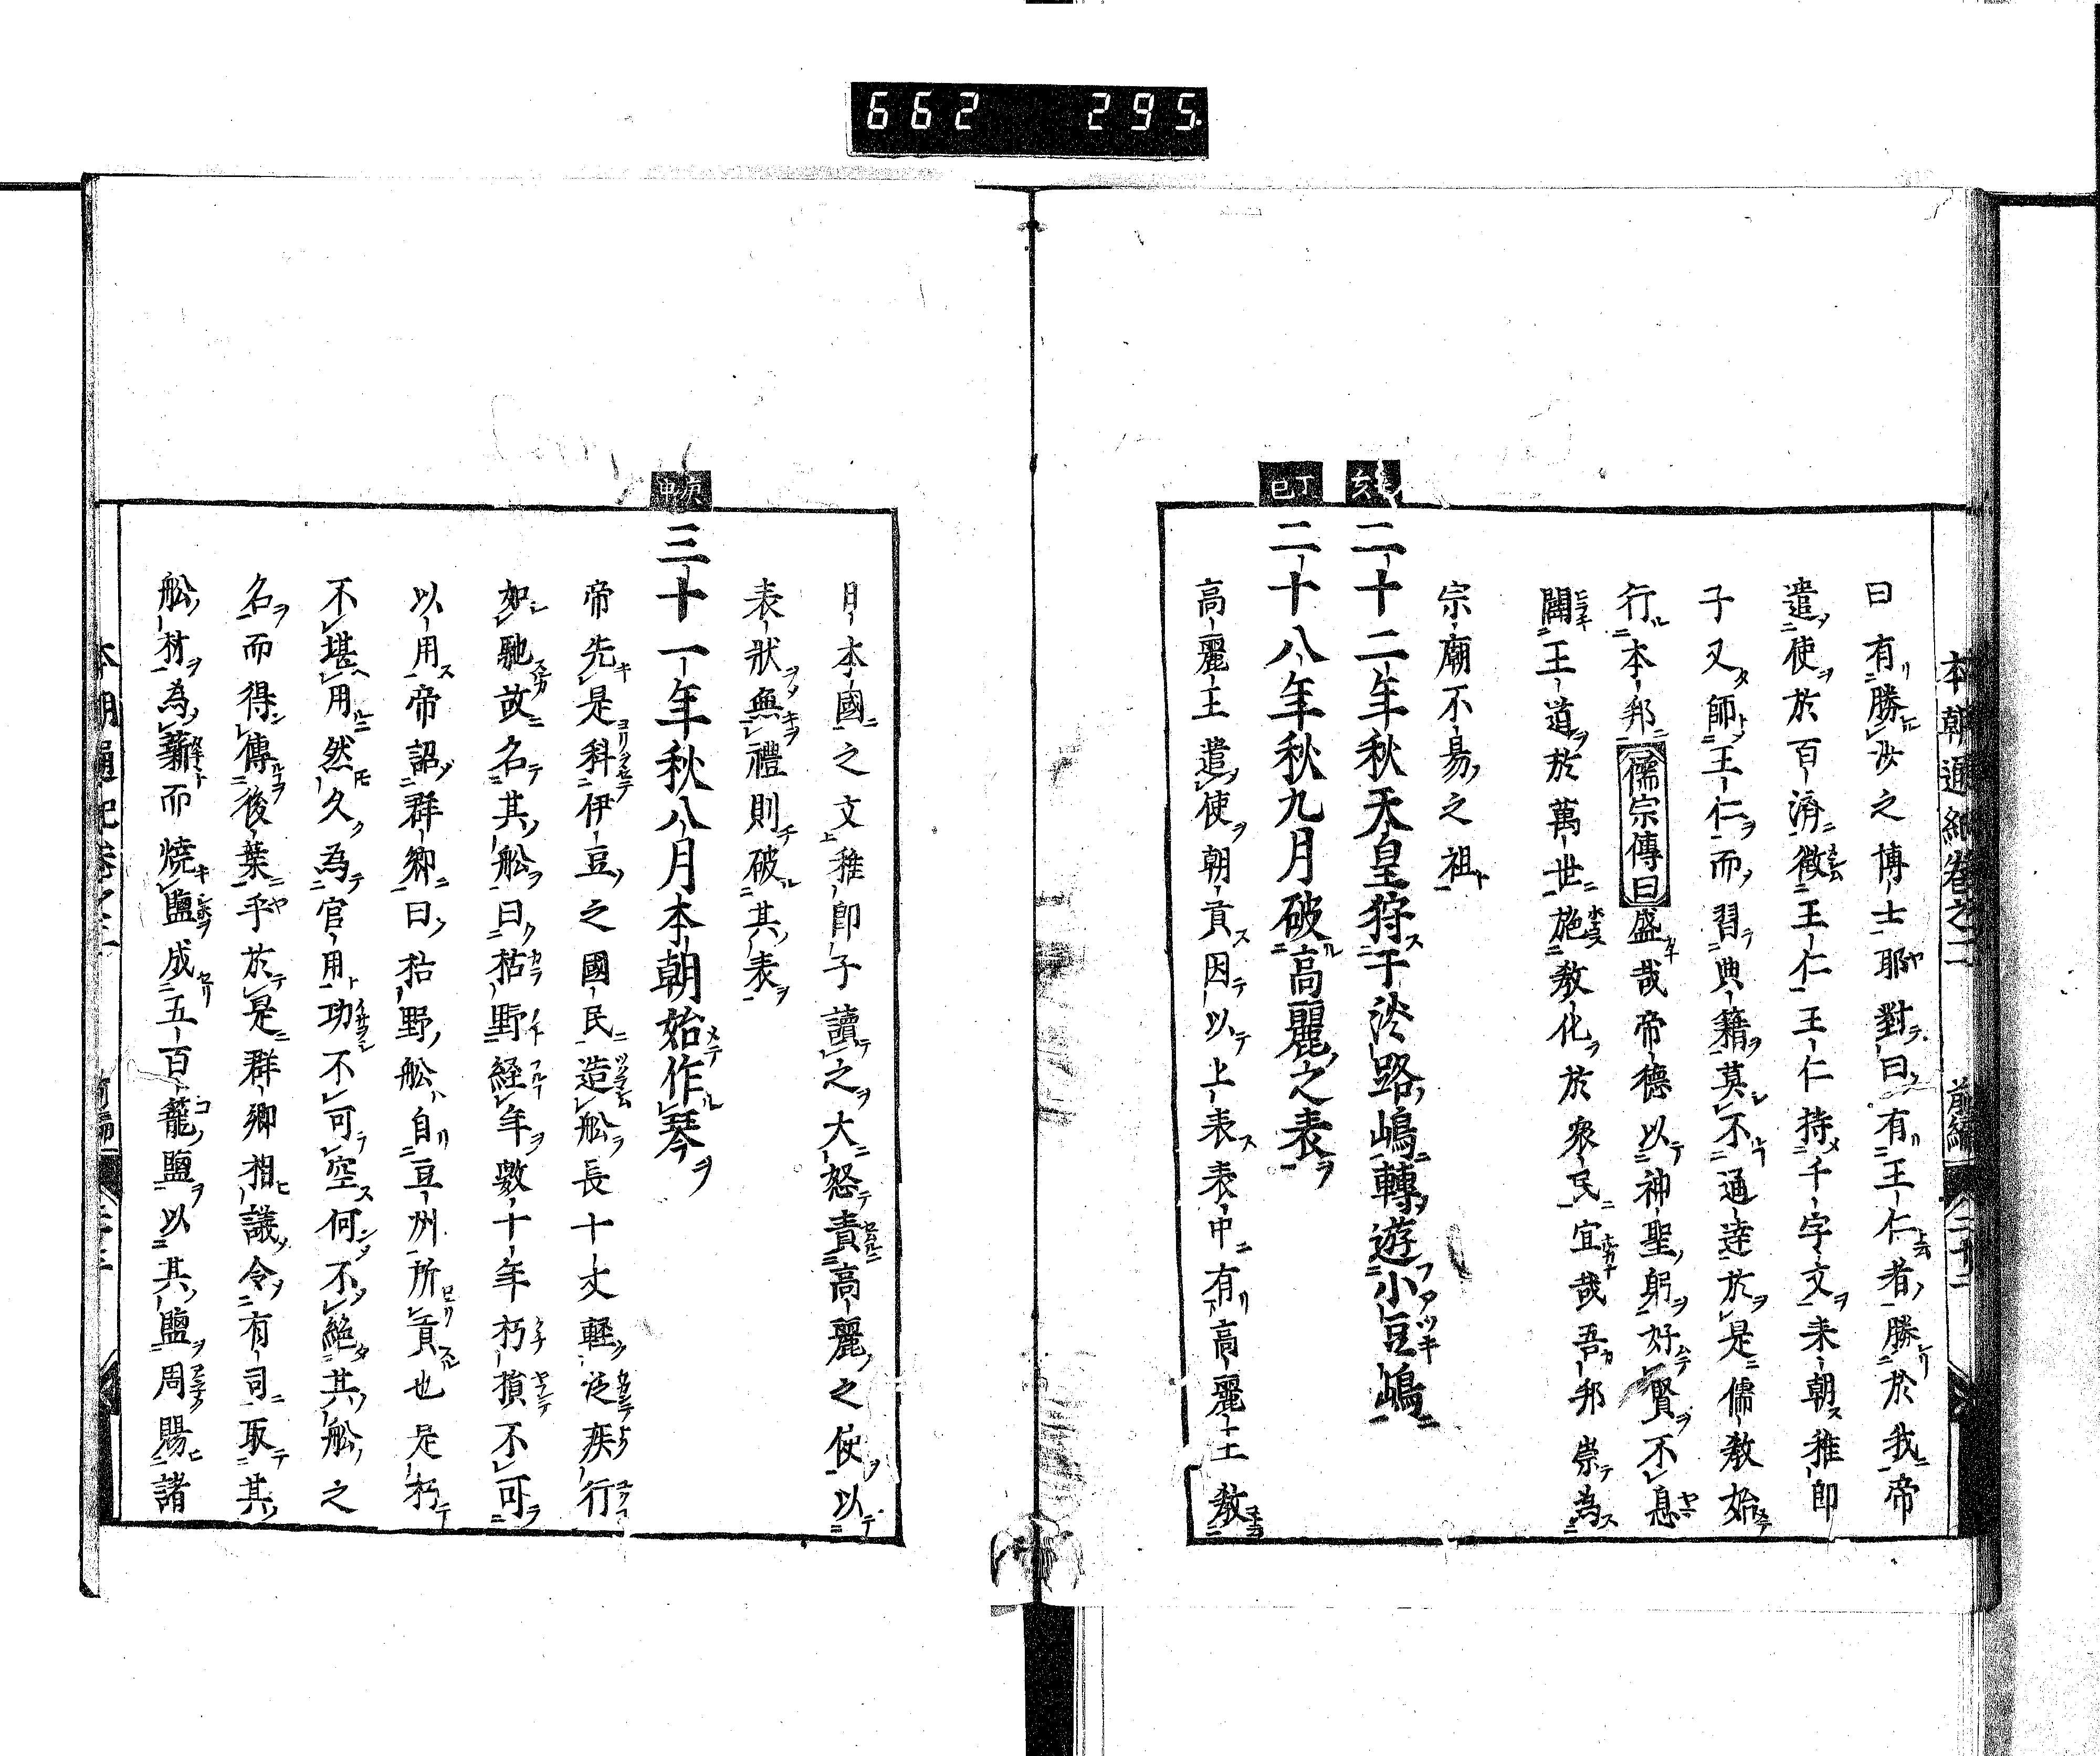 662 295
本朝通紀卷之二 前編 二十二
曰有勝汝之博士耶對曰有王仁者勝於我帝
遣使於百濟徵王仁王仁持千字文来朝稚郎
子又師王仁而習典籍莫不通達於是儒教始
行本邦儒宗傳曰盛哉帝德以神聖躬好賢不息
闢王道於萬世施教化於衆民宜哉吾邦崇為
宗廟不易之祖
亥
二十二年秋天皇狩于淡路嶋轉遊小豆嶋
丁巳
二十八年秋九月破高麗之表
高麗王遣使朝貢因以上表表中有高麗王教
日本國之文稚郎子讀之大怒責高麗之使以
表狀無禮則破其表
庚申
三十一年秋八月本朝始作琴
帝先是科伊豆之國民造舩長十丈軽泛疾行
如馳故名其舩曰枯野経年數十年朽損不可
以用帝詔群卿曰枯野舩自豆州所貢也是朽
不堪用然久為官用功不可空何不絕其舩之
名而得傳後葉乎於是群卿相議令有司取其
舩材為薪而焼鹽成五百籠鹽以其鹽周賜諸
本朝通紀卷之二 前編